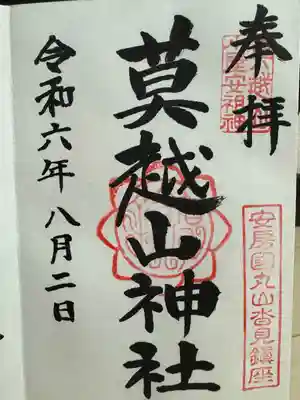 奉拝
莫越山神社
令和六年八月二日
安房国丸山沓見鎮座